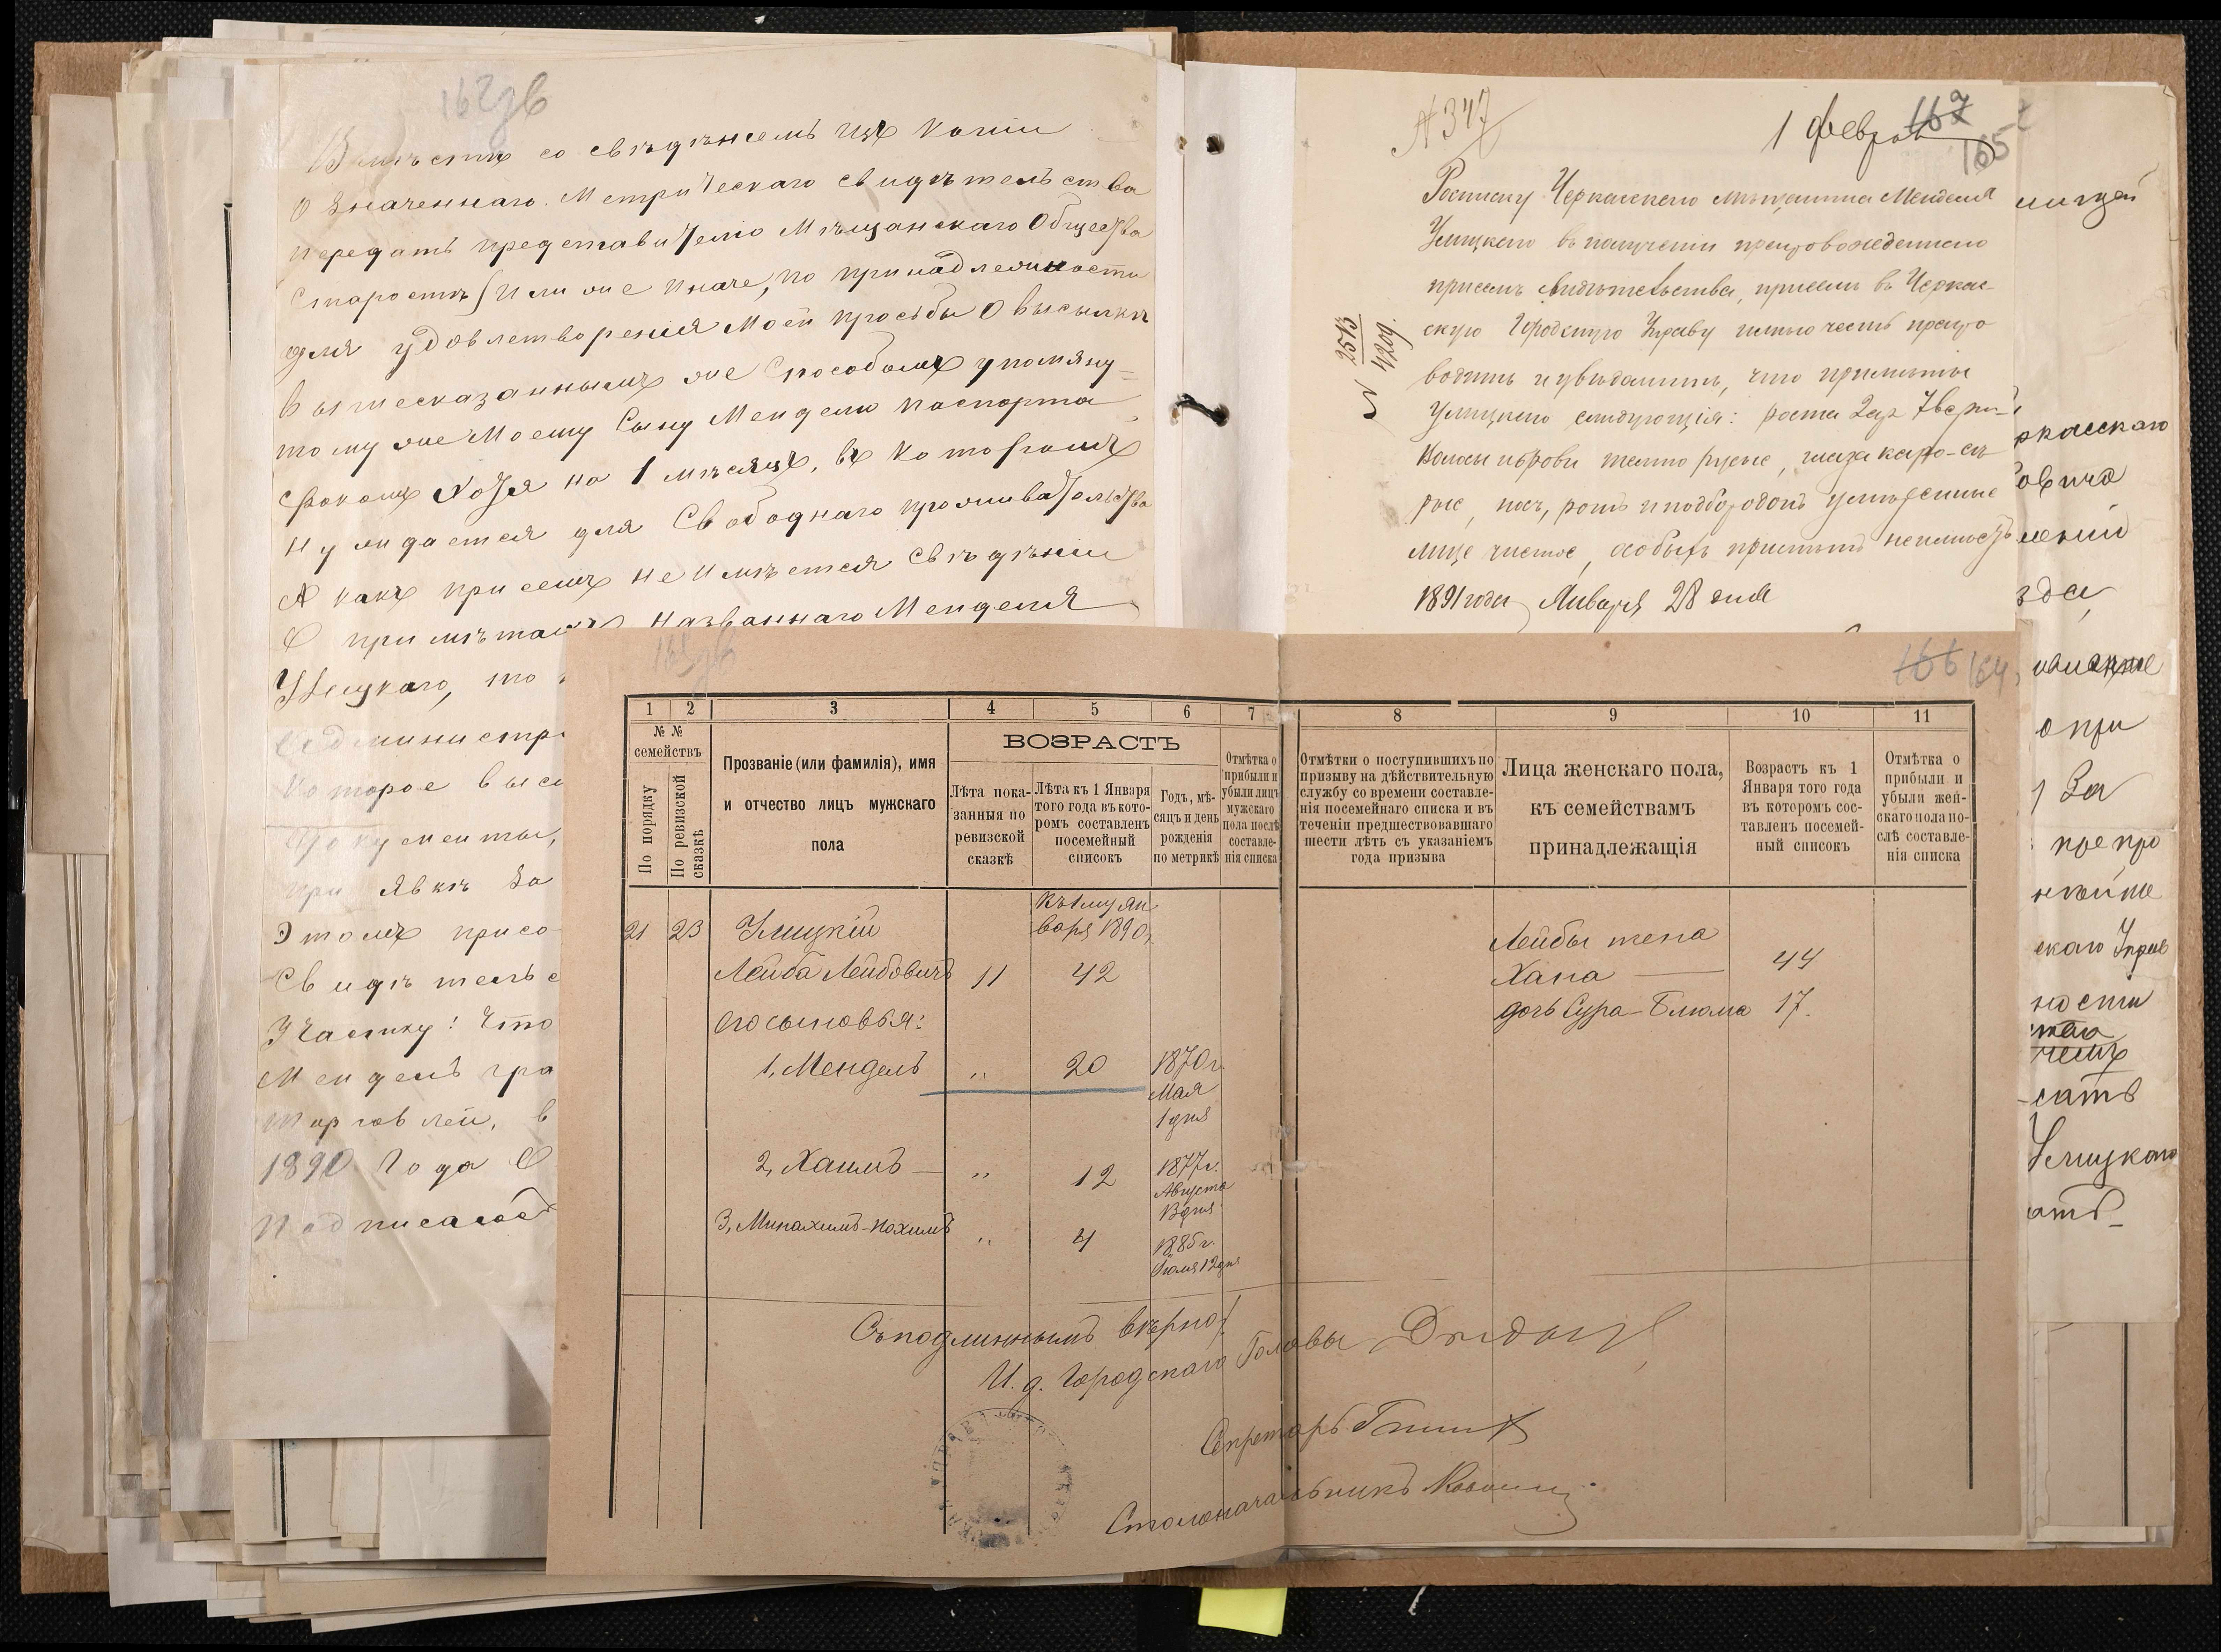 162 об
Вместе со сведениемъ изъ копіи
означеннаго Метрическаго свидѣтельства
передать представителю Мѣщанскаго Общества
Старостѣ (или же иначе, по принадлежности
для удовлетворенія моей просьбы о высылкѣ
вышесказаннымъ же способомъ упомяну-
тому же моему сыну Менделю паспорта
срокомъ хотя на 1 мѣсяцъ, въ которомъ
нуждается для свободнаго проживательства
А какъ при семъ не имѣется свѣдѣніи
о примѣтахъ названнаго Менделя
Улицкаго, то
Администр
которое высы
документы,
при явкѣ за
Этомъ присо
Свидѣтельс
Участку: Что
Мендель гра
торговлей, в
1890 года
подписалъ
№ 347
1 Феврал
167
165
Росписку Черкасскаго мѣщанина Менделя
Улицкаго въ полученіи препровожденнаго
присемъ свидѣтельства, присемъ въ Черкас-
скую Городскую Управу имѣю честь препро
водить и увѣдомить, что примѣты
Улицкаго слѣдующія: роста 2 ар 7 верш-
волосы и брови темно русые, глаза каро-сѣ
рые, носъ, ротъ и подбородокъ умѣренные
лице чистое, особыхъ примѣтъ неимѣетъ
1891 года Января 28 дня
№ 2513
4209.
ркасскаго
овича
зда,
о при
1 За
препро
скаго Управ
ности
чемъ
сать
Улицкаго
ать
163 об
166 164
1 2 3 4 5 6 7 8 9 10 11
№ №
семействъ
По порядку
По ревизской сказкѣ
Прозваніе (или фамилія), имя
и отчество лицъ мужскаго
пола
ВОЗРАСТЪ
Лѣта пока-
занныя по
ревизской
сказкѣ
Лѣта къ 1 Января
того года въ кото-
ромъ составленъ
посемейный
списокъ
Годъ, мѣ-
сяцъ и день
рожденія
по метрикѣ
Отмѣтка о
прибыли и
убыли лицъ
мужскаго
пола послѣ
составле-
нія списка
Отмѣтки о поступившихъ по
призыву на дѣйствительную
службу со времени составле-
нія посемейнаго списка и въ
теченіи предшествовавшаго
шести лѣтъ съ указаніемъ
года призыва
Лица женскаго пола,
къ семействамъ
принадлежащія
Возрастъ къ 1
Января того года
въ которомъ сос-
тавленъ посемей-
ный списокъ
Отмѣтка о
прибыли и
убыли жен-
скаго пола по-
слѣ составле-
нія списка
къ 1му Ян
варя 1890 г.
21 23 Улицкій
Лейба Лейбовичъ 11 42
его сыновья:
1, Мендель „ 20 1870 г.
Мая
1 дня
2, Хаимъ — „ 12 1877 г.
Августа
13 дня
3, Минахимъ-Нохимъ „ 4 1885 г.
Іюля 12 дня
Лейбы жена
Хана — 44
дочь Сура-Блюма 17.
Съ подлиннымъ вѣрно:
И. д. Городскаго Головы
Секретарь
Столоначальникъ